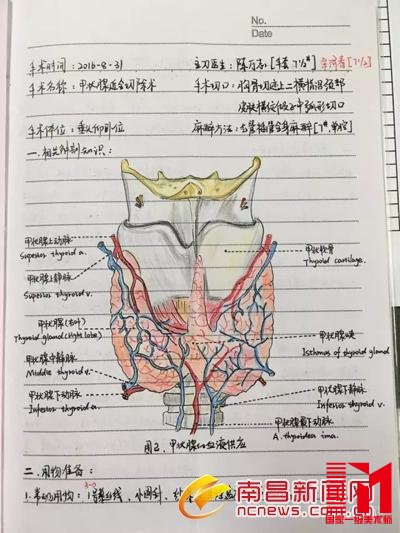 No.
Date
手术时间：2016-8-31
主刀医生：陈万志 [手套 7½#]
[7½]
手术名称：甲状腺近全切除术
手术切口：胸骨切迹上二横指沿颈部
皮肤横纹做 弧形切口
手术体位：垂头仰卧位
麻醉方法：气管插管全身麻醉
一. 相关解剖知识：
甲状腺上动脉
Superior thyroid a.
甲状腺上静脉
Superior thyroid v.
甲状腺(右叶)
Thyroid gland (right lobe)
甲状腺中静脉
Middle thyroid v.
甲状腺下动脉
Inferior thyroid a.
甲状软骨
Thyroid cartilage.
甲状腺峡
Isthmus of thyroid gland
甲状腺下静脉
Inferior thyroid v.
甲状腺最下动脉
A. thyroidea ima.
图2. 甲状腺的血液供应
二. 用物准备：
3-0
1. 用物：1号丝线、小圆针、
南昌新闻网
ncnews.com.cn
国家一级美术师